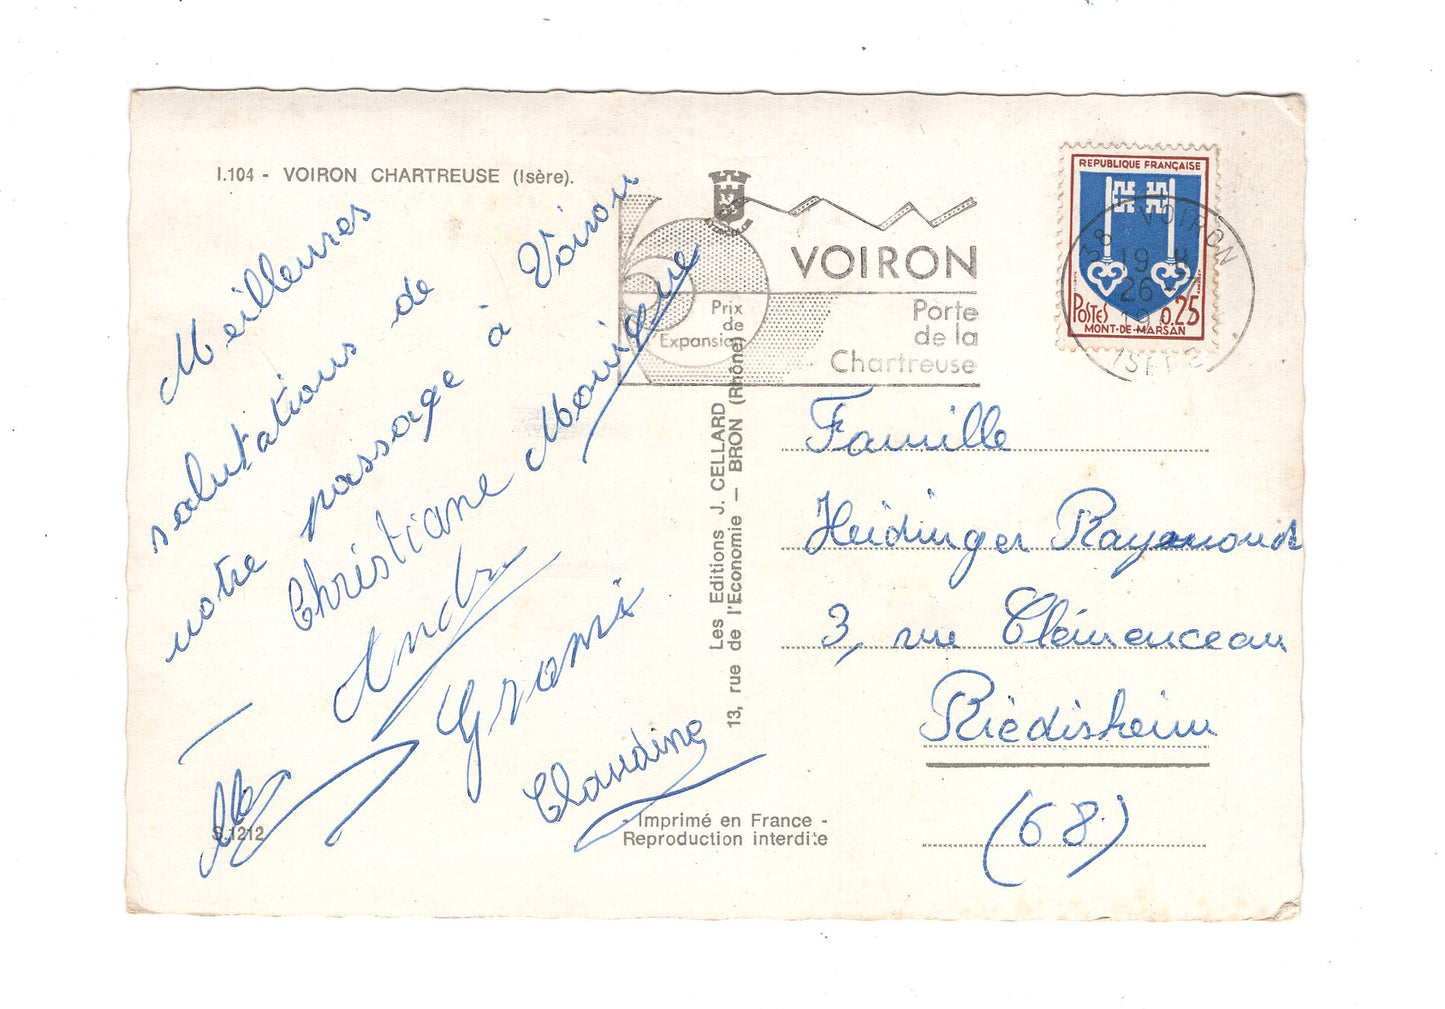 I.104 - VOIRON CHARTREUSE (Isère).
Meilleures
salutations de
notre passage à Voiron
Christiane Monique
André
Grami
Claudine
S.1212
Les Editions J. CELLARD
13, rue de l'Economie — BRON (Rhône)
- Imprimé en France -
Reproduction interdite
VOIRON
Prix
de
Expansion
Porte
de la
Chartreuse
REPUBLIQUE FRANÇAISE
POSTES 0.25
MONT-DE-MARSAN
38 VOIRON
19 H
26
ISERE
Famille
Heidinger Raymond
3, rue Clémenceau
Riedisheim
(68)